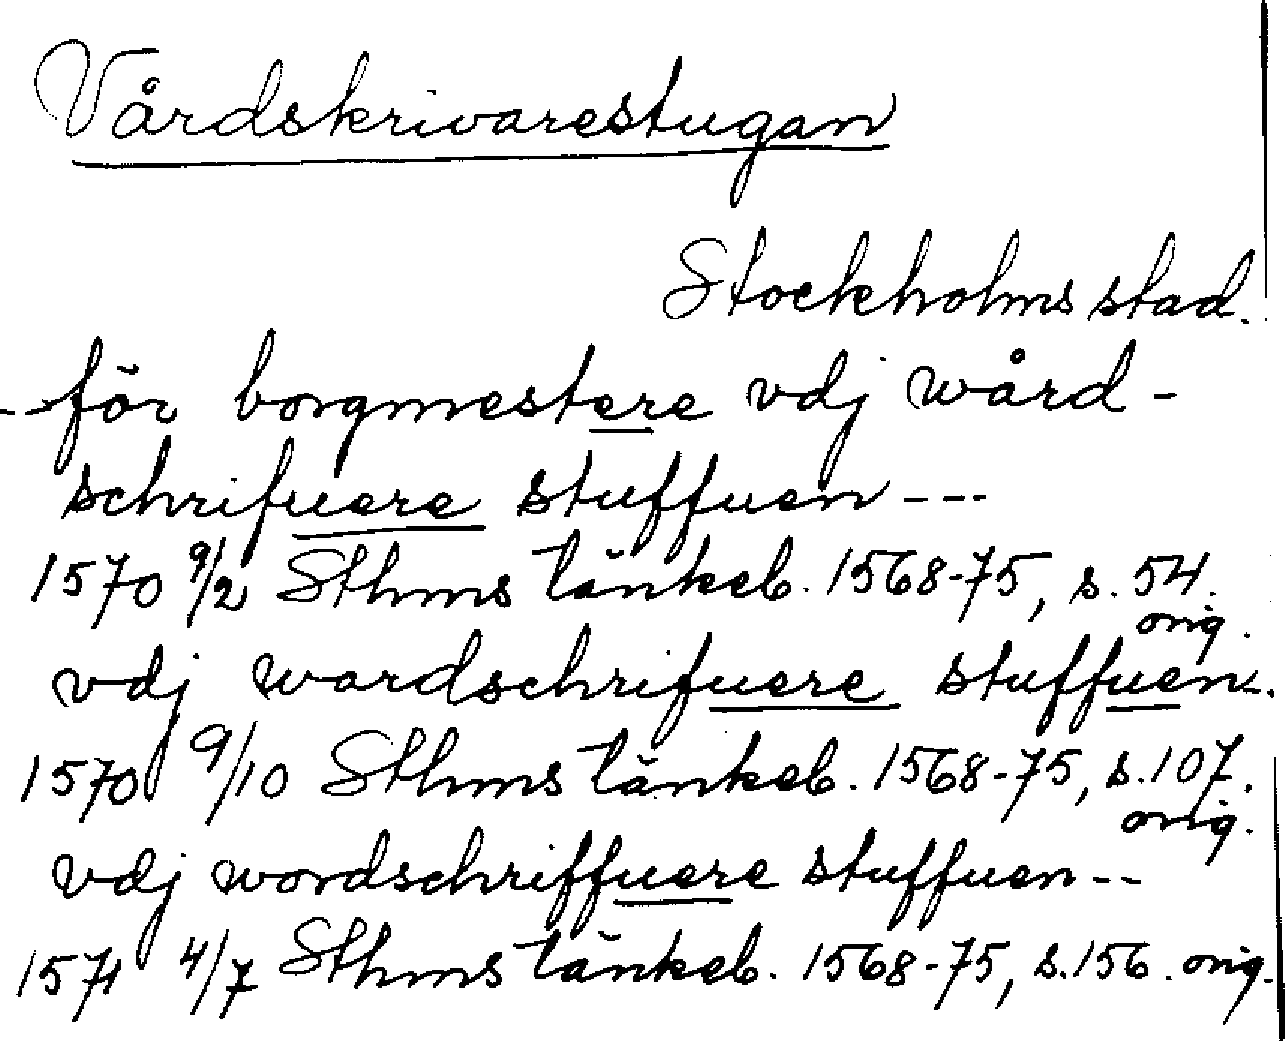 Vårdskrivarestugan
Stockholms stad.
-- för borgmestere vdj wård-
schrifuere stuffuen ---
1570 9/2 Sthms tänkeb. 1568-75, s. 54.
orig.
vdj wardschrifuere stuffuen.
1570 9/10 Sthms tänkeb. 1568-75, s. 107.
orig.
vdj wordschriffuere stuffuen --
1571 4/7 Sthms tänkeb. 1568-75, s. 156. orig.